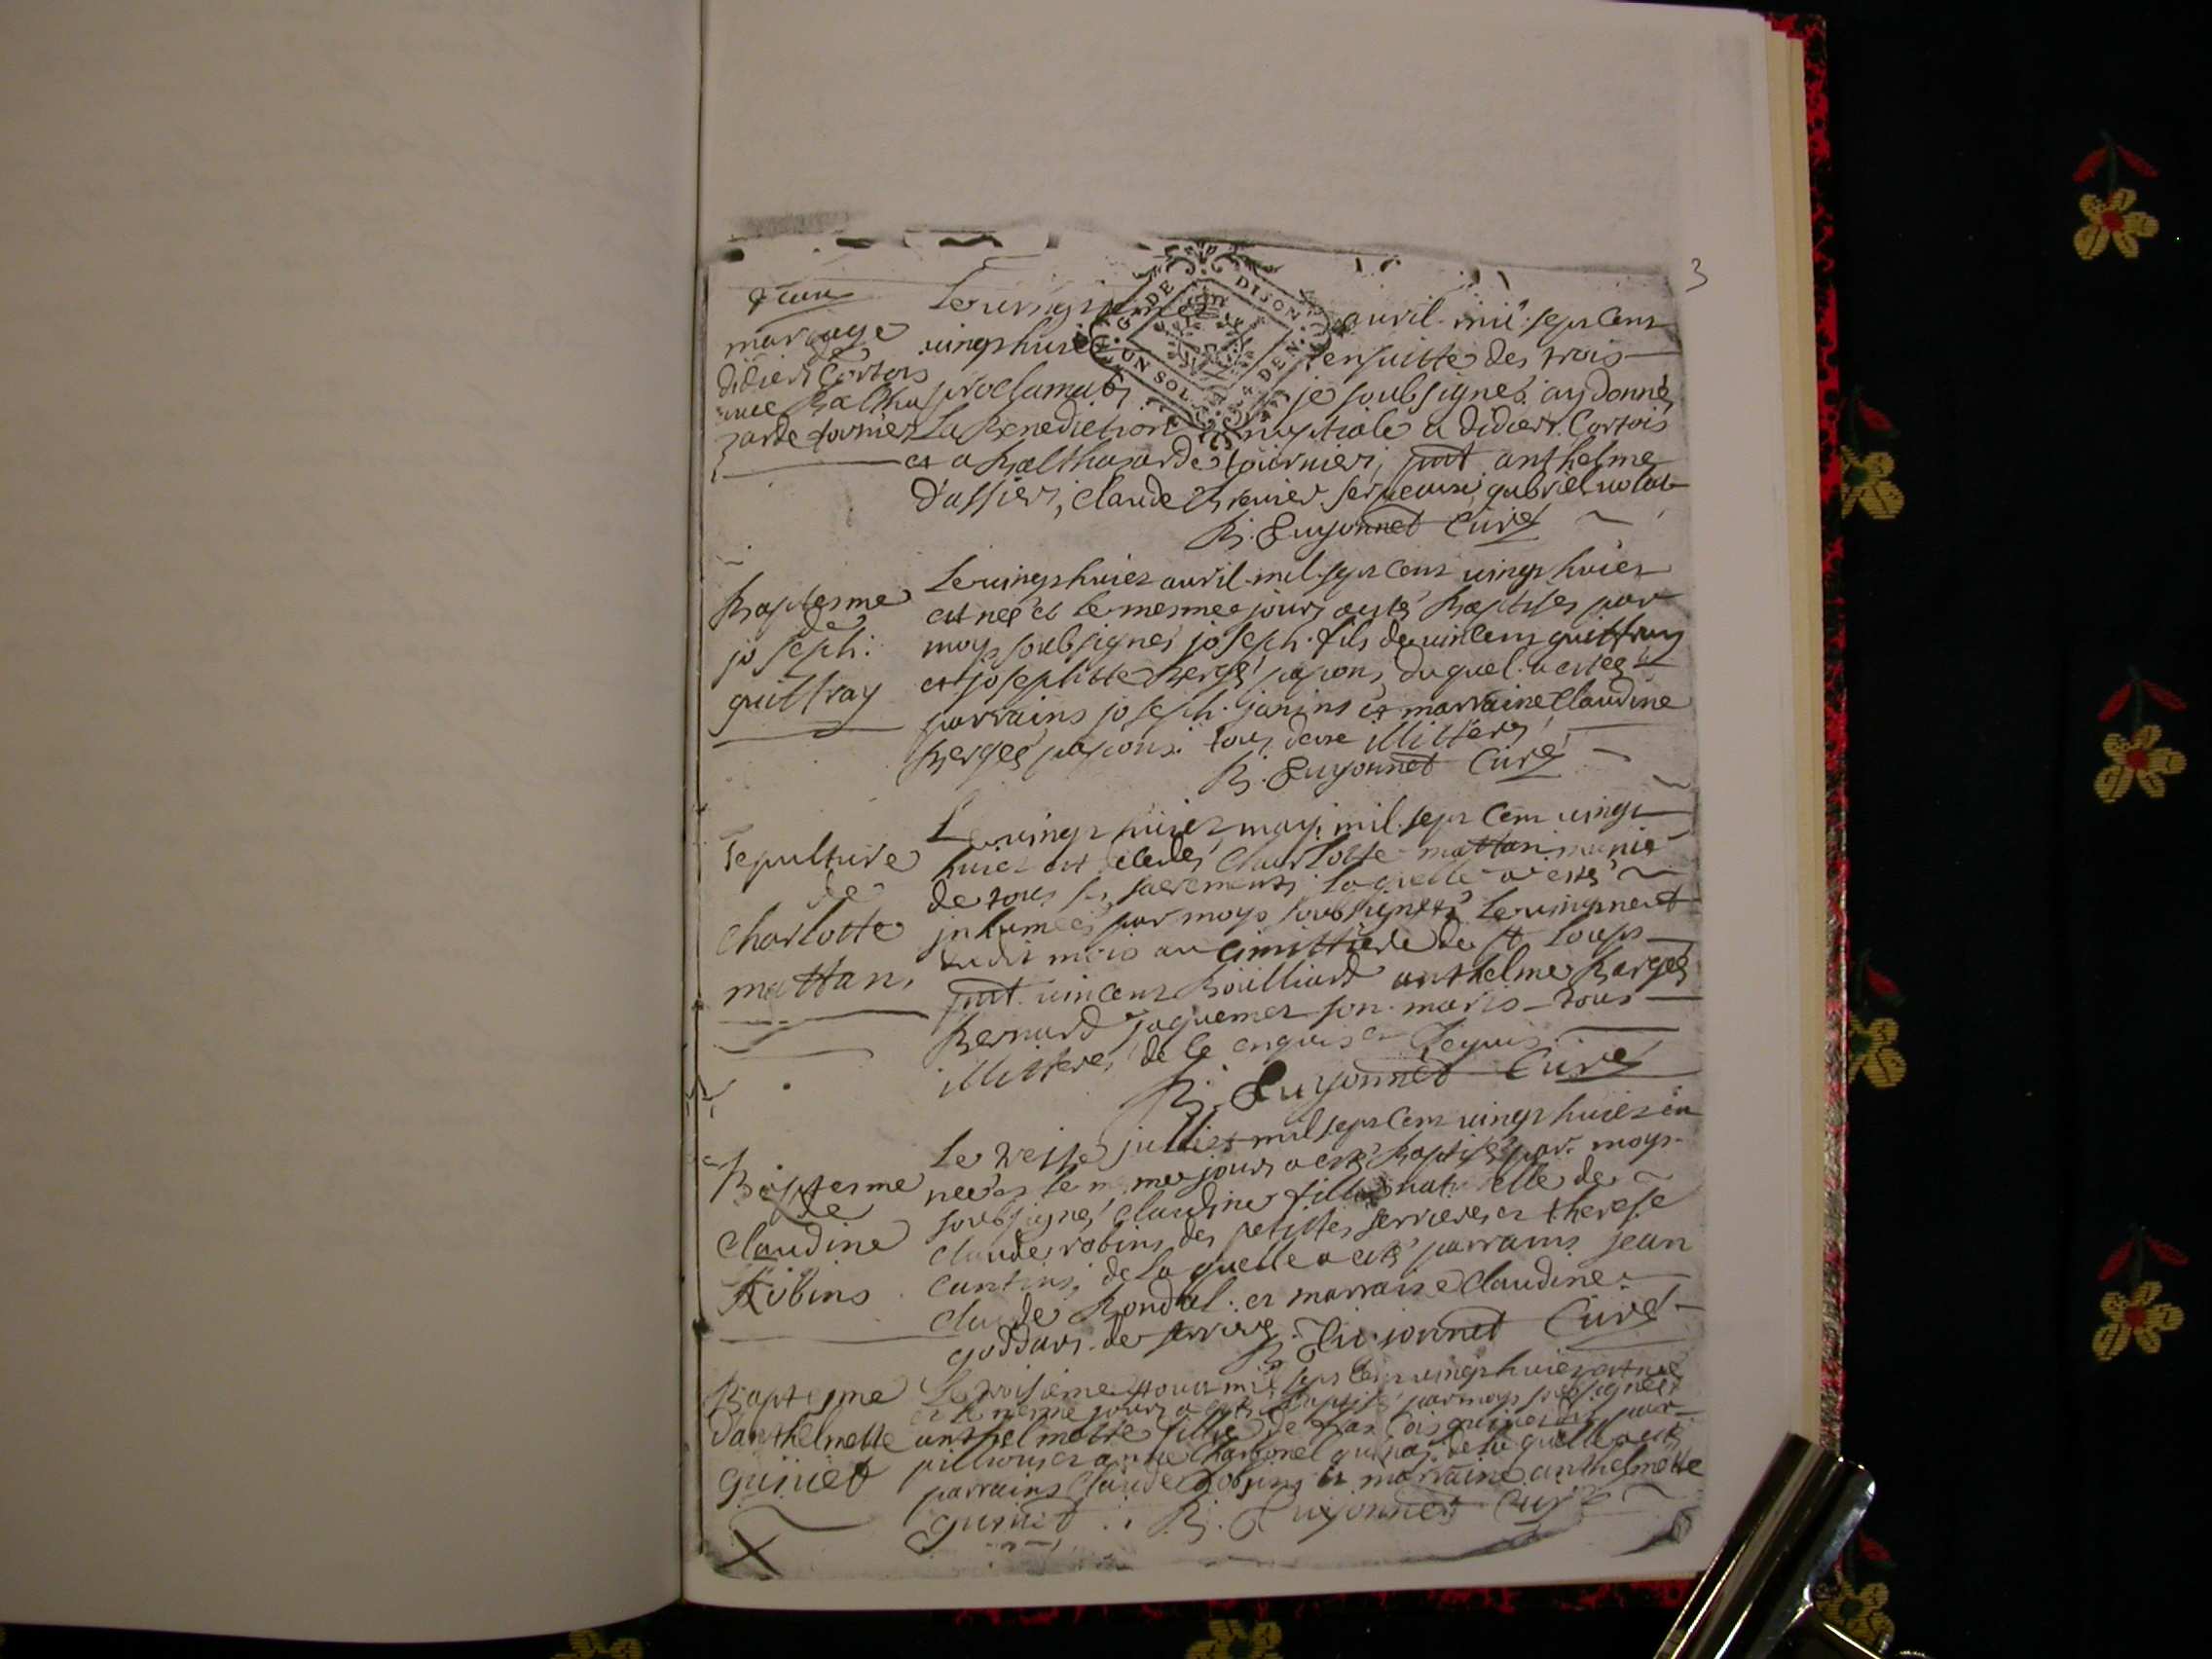 3
G. DE DIJON
UN SOL
DEN.
mariage
de
didier Cortois
avec Baltha
zarde fournier
avril mil sept Cens
vingt huict ensuitte des trois
proclamaõs je soubsigné ay donné
La Benediction nuptiale a didier Cortois
et a Balthazarde fournier, pnt anthelme
Claude gabriel
B. Guyonnet Curé
Baptesme
de
joseph
guittray
Le vingt huict avril mil sept cens vingt huict
est né et le mesme jour a esté Baptisé par
moy soubsigné joseph fils de vincens guittray
et josephtte Bergé papon, duquel a esté
parrains joseph janins et marraine Claudine
Bergé papons tous deux illitéré
B. Guyonnet Curé
Sepulture
de
charlotte
mattan
Le vingt huict may mil sept cens vingt
huict est decedé Charlotte mattan munie
de tous ses sacrements laquelle a esté
inhumée par moy soubsigné Le vingt neuf
dudit mois au cimittiere de st Loup
pnt vincens Boulliard anthelme Bergé
Bernard jaquemet son maris tous
illitéré de ce enquis et requis
B. Guyonnet Curé
Baptesme
de
Claudine
Robins
Le treise juillet mil sept cens vingt huict est
née et le mesme jour a esté Baptisé par moy
soubsigné Claudine fille naturelle de
Claude robins des petittes serrieres et therese
de laquelle a esté parrains jean
claude Rondel et marraine Claudine
goddars de serriere B. Guyonnet Curé
Baptesme
danthelmette
guinet
Le troisieme aoust mil sept cens vingt huict est née
et le mesme jour a esté Baptisé par moy soubsigné
anthelmette fille de francois guinet dit
et anne Charbonel de laquelle a esté
parrains Claude Robins et marraine anthelmette
guinet B. Guyonnet Curé